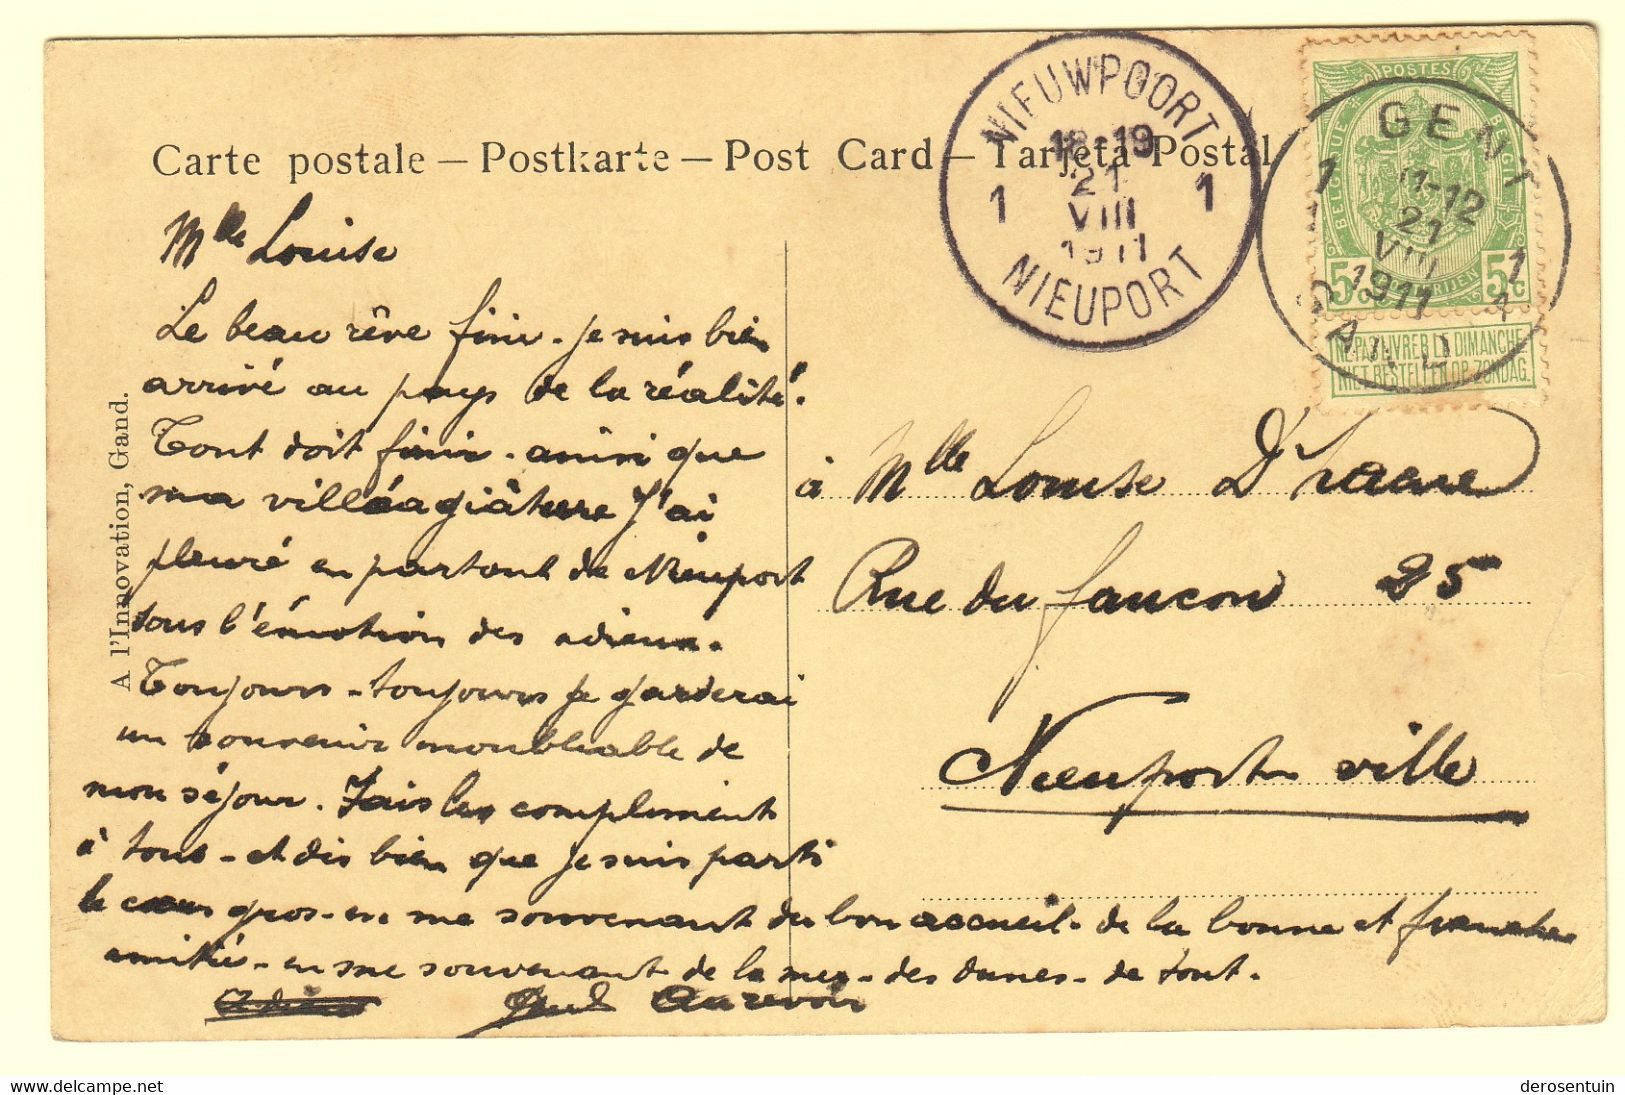 Carte postale – Postkarte – Post Card – Tarjeta Postal
NIEUWPOORT
18-19
1 21 1
VIII
1911
NIEUPORT
GENT
1 11-12
21
VIII
1911
1
GAND
POSTES
BELGIQUE
BELGIË
5c 5c
NE PAS LIVRER LE DIMANCHE
NIET BESTELLEN OP ZONDAG.
A l'Innovation, Gand.
Mlle Louise
Le beau rêve fini - je suis bien
arrivé au pays de la réalité.
Tout doit finir - ainsi que
ma villéagiâture J'ai
pleuré en partant de Nieuport
sous l'émotion des adieux.
Toujours - toujours je garderai
un souvenir inoubliable de
mon séjour. Fais les compliments
à tous - et dis bien que je suis parti
le cœur gros - en me souvenant du bon accueil - de la bonne et franche
amitié - en me souvenant de la mer - des dunes - de tout.
Au revoir
à Mlle Louise D'haene
Rue du faucon 25
Nieuport ville
maandag 26 december 2022
derosentuin